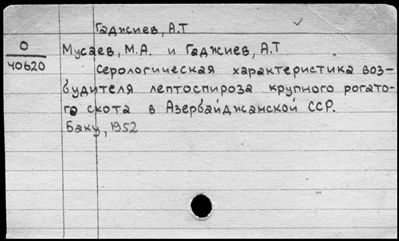 Гаджиев, А.Т
О
40620
Мусаев, М.А. и Гаджиев, А.Т
Серологическая характеристика воз-
будителя лептоспироза крупного рогато-
га скота в Азербайджанской ССР.
Баку, 1952